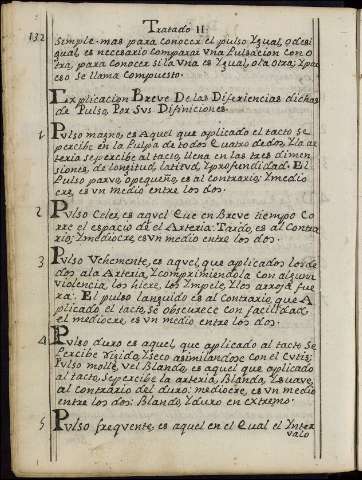 Tratado II
132
Simple. mas para Conocer el pulso Ygual, O desi
gual, es necesario Comparar Vna Pulsacion Con O
tra, para conocer si la Vna es Ygual, o la Otra; Y por
eso Se llama Compuesto.
Explicacion Breve De las Diferiencias dichas
de Pulso, Por Sus Difiniciones.
1 Pulso magno, es Aquel que aplicado el tacto se
percibe en la Pulpa de todos Quatro dedos, Y la ar
teria se percibe al tacto, llena en las tres dimen
siones, de longitud, latitud, Y profundidad. El
Pulso parvo, o pequeño, es al contrario; Y medio
cre, es Vn medio entre los dos.
2 Pulso Celer, es aquel Que en Breve tiempo Co
rre el espacio de el Arteria: Tardo, es al Contra
rio; Y mediocre, es Vn medio entre los dos.
3 Pulso Vehemente, es aquel, que aplicados los de
dos a la Arteria, Y comprimiendola con alguna
violencia, los hiere, los Ympele, Y los arroja fue
ra. El pulso languido es al Contrario, que A
plicado el tacto, se obscurece con facilidad,
el mediocre es vn medio entre los dos.
4 Pulso duro es aquel, que aplicado al tacto Se
Percibe rigido, Y seco asimilandose con el Cutis;
Pulso molle, vel Blando, es aquel que aplicado
al tacto, se percibe la arteria, Blanda, Y suave,
al Contrario del duro: mediocre, es vn medio
entre los dos: Blando, Y duro en extremo.
5 Pulso frequente, es aquel en el Qual el Ynter
valo